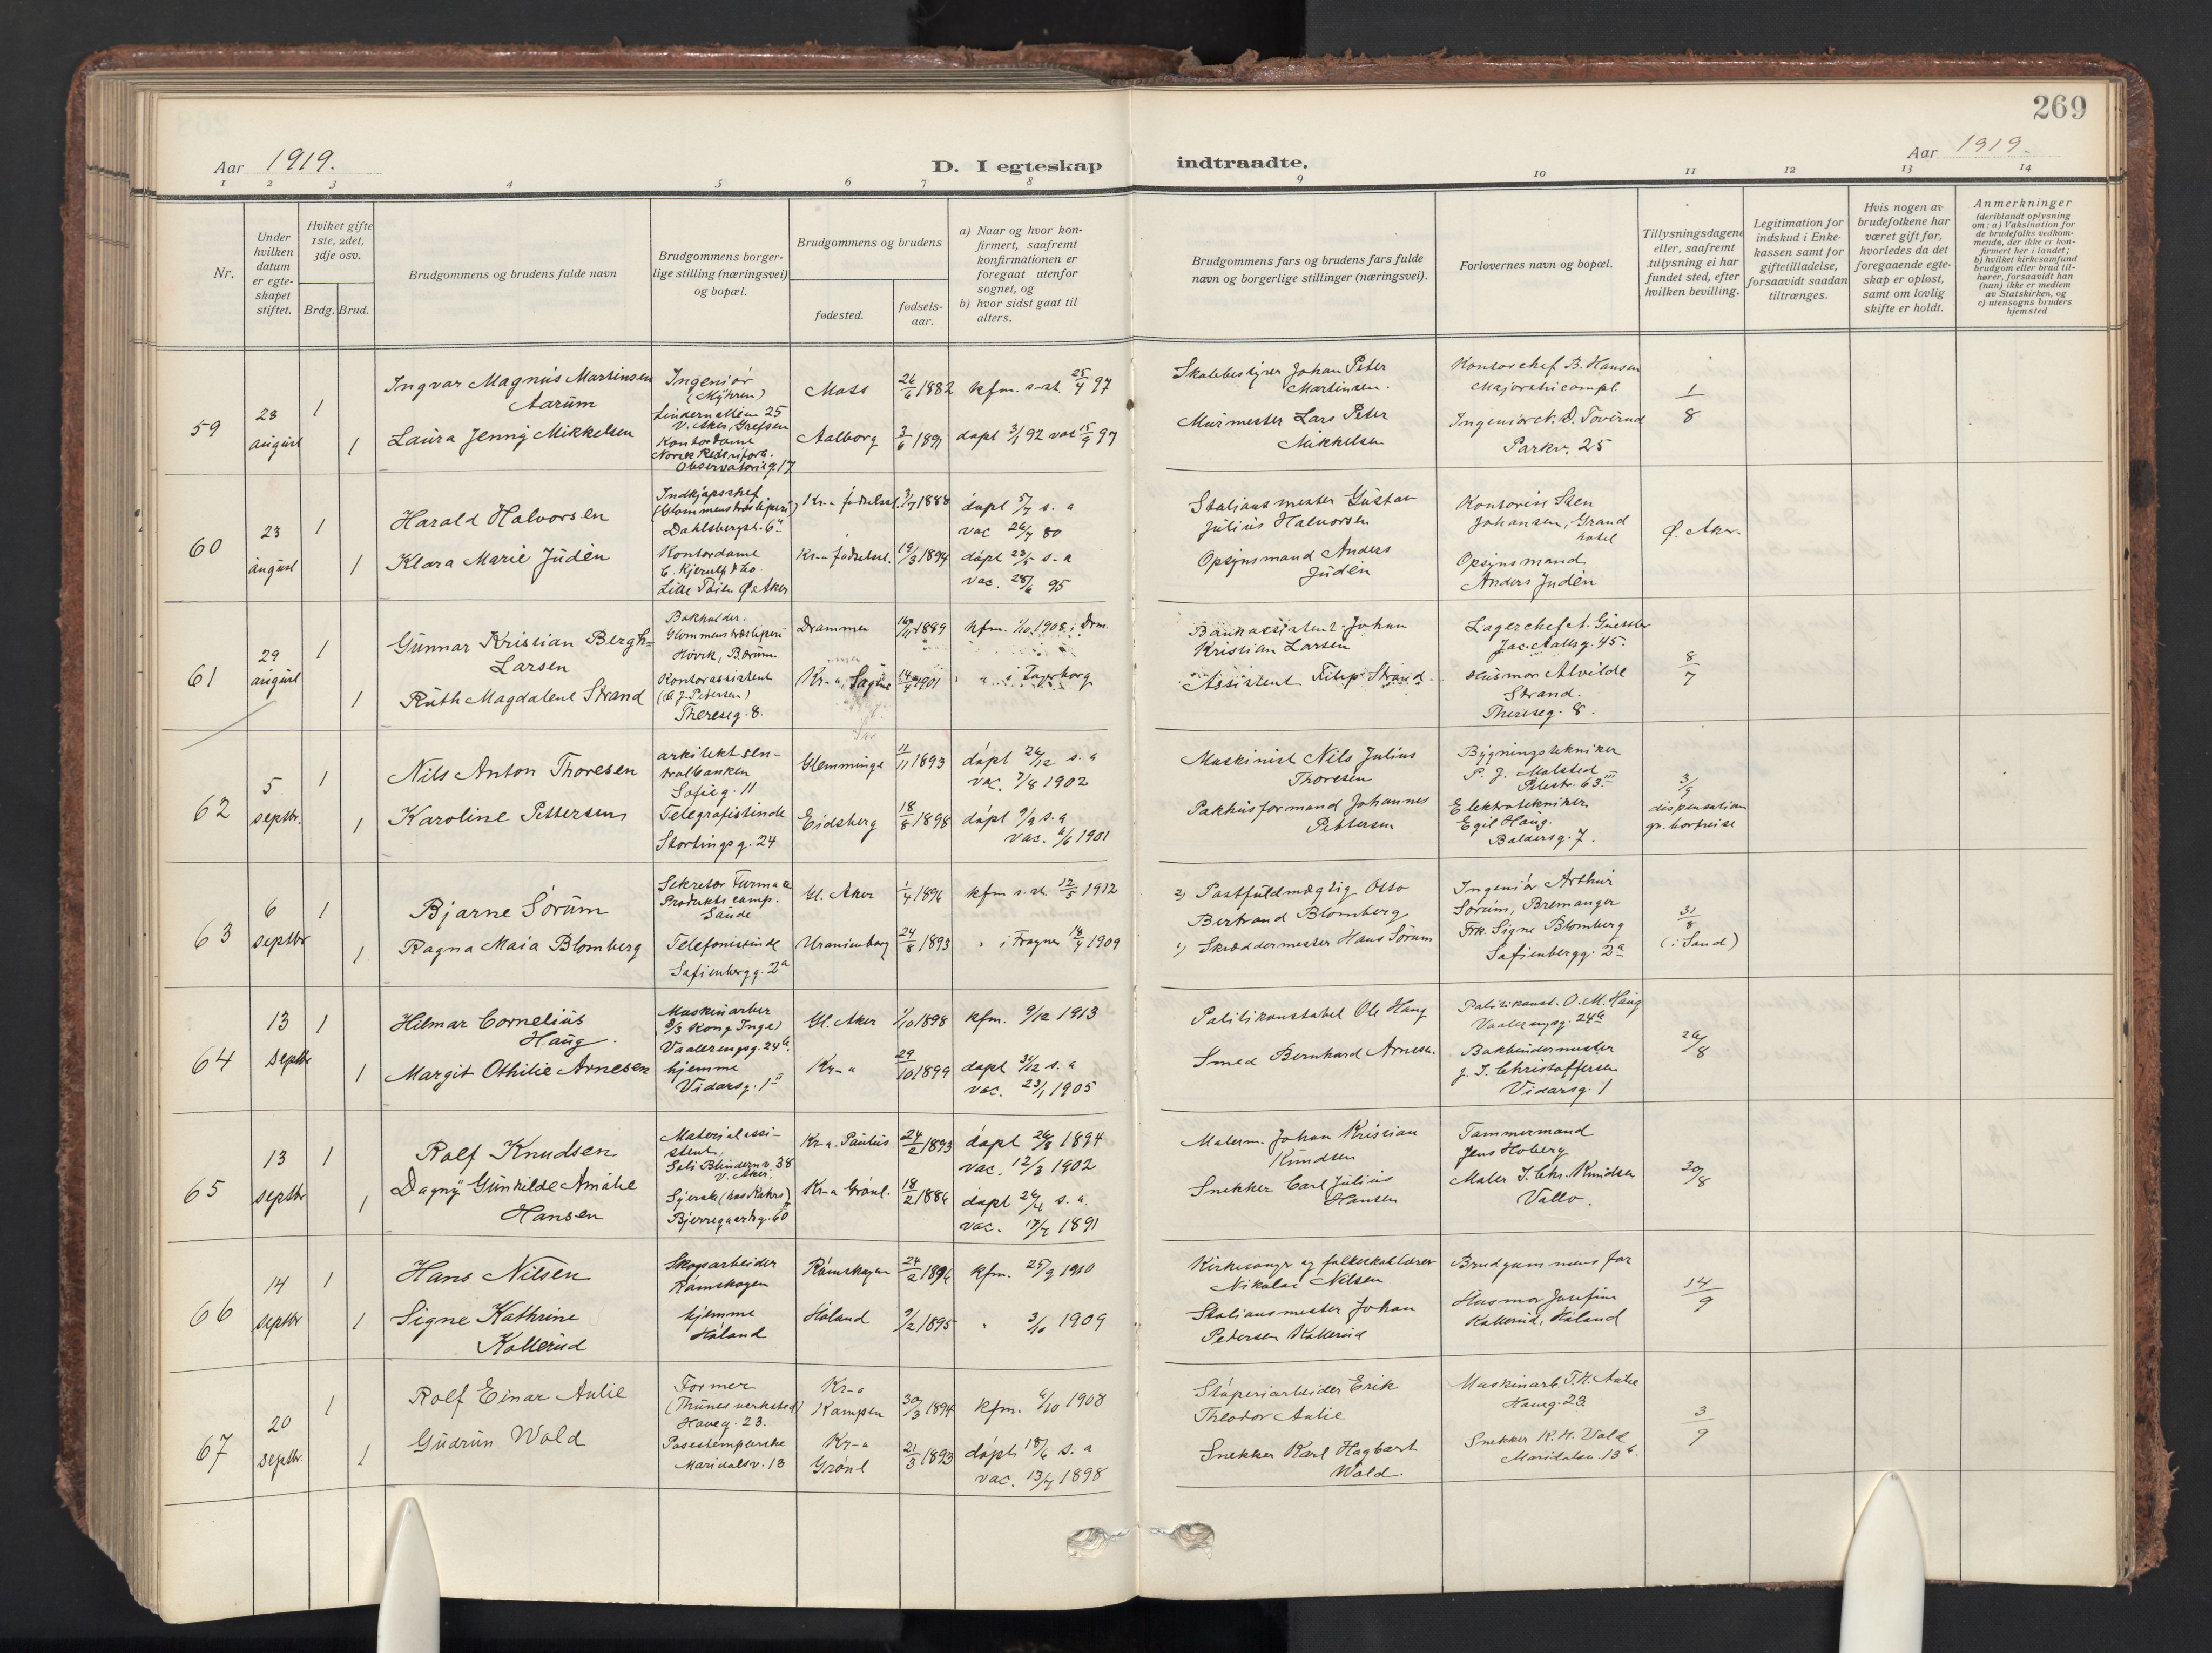 269
Aar 1919.
D. I egteskap indtraadte.
Aar 1919.
1 2 3 4 5 6 7 8 9 10 11 12 13 14
Nr.
Under hvilken datum er egteskapet stiftet.
Hvilket gifte 1ste, 2det, 3dje osv.
Brdg. Brud.
Brudgommens og brudens fulde navn
Brudgommens borgerlige stilling (næringsvei) og bopæl.
Brudgommens og brudens
fødested.
fødselsaar.
a) Naar og hvor konfirmert, saafremt konfirmationen er foregaat utenfor sognet, og
b) hvor sidst gaat til alters.
Brudgommens fars og brudens fars fulde navn og borgerlige stillinger (næringsvei).
Forlovernes navn og bopæl.
Tillysningsdagene eller, saafremt tillysning ei har fundet sted, efter hvilken bevilling.
Legitimation for indskud i Enkekassen samt for giftetilladelse, forsaavidt saadan tiltrænges.
Hvis nogen av brudefolkene har været gift før, hvorledes da det foregaaende egteskap er opløst, samt om lovlig skifte er holdt.
Anmerkninger
(deriblandt oplysning om: a) Vaksination for de brudefolks vedkommende, der ikke er konfirmert her i landet; b) hvilket kirkesamfund brudgom eller brud tilhører, forsaavidt han (hun) ikke er medlem av Statskirken, og c) utensogns bruders hjemsted
59
23 august
1
Ingvar Magnus Martinsen Aarum
Ingeniör (Myhren)
Lindernalléen 25
V. Aker, Grefsen
Moss
26/6 1882
kfm. s. st. 25/4 97
Skolebestyrer Johan Peter Martinsen.
Kontorchef B. Hansen
1/8
1
Laura Jenny Mikkelsen
Kontordame
Norsk Rederiforb.
Observatorieg. 17
Aalborg
3/6 1891
Murmester Lars Peter Mikkelsen
Parkv. 25
60
23 august
1
Harald Halvorsen
Indkjøpschef
(Glommens træsliperi)
Dahlsbergst. 6
Kr-a fødselsst.
3/7 1888
döpt 5/7 s. a
vac 26/7 80
Stationsmester Gustav Julius Halvorsen
Kontorist Sten Johansen, Grand hotel
Ø. Aker
1
Klara Marie Judén
Kontordame
C. Kjerulf & Co.
Lille Töien Ø. Aker
Kr-a fødselsst.
19/3 1894
döpt 23/5 s. a
vac. 28/6 95
Opsynsmand Anders Judén
Opsynsmand Anders Judén
61
29 august
1
Gunnar Kristian Bergh-Larsen
Bokholder.
Glommens træsliperi
Høvik, Bærum.
Drammen
16/11 1889
kfm. 1/10 1908 i Drm.
Bankassistent Johan Kristian Larsen
Jac. Aallsg. 45.
8/7
1
Ruth Magdalene Strand
Kontorassistent
Thereseg. 8.
Kr-a, Sagene
14/4 1901
" " i Fagerborg
Assistent Filip Strand.
Husmor Alvilde Strand.
Thereseg. 8.
62
5 septbr.
1
Nils Anton Thoresen
arkitekt sentralbanken
Sofieg. 11
Glemminge
11/11 1893
döpt 26/12 s. a
vac. 7/8 1902
Maskinist Nils Julius Thoresen
Bygningstekniker
P. J. Molsted
Pilestr. 63 III
3/9
dispensation
gr. bortreise
1
Karoline Pettersen
Telegrafistinde
Stortingsg. 24
Eidsberg
18/8 1898
döpt 9/9 s. a
vac. 6/6 1901
Pakhusformand Johannes Pettersen
Elektrotekniker
Egil Haug.
Baldersg. 7.
63
6 septbr
1
Bjarne Sörum
Sekretær
Sande
Gl. Aker
1/4 1896
kfm s. st. 12/5 1912
2) Postfuldmægtig Otto Bertrand Blomberg
Ingeniör Arthur Sörum, Bremanger
31/8
(i Sand)
1
Ragna Maia Blomberg
Telefonistinde
Sofienbergg. 2a
Uranienborg
24/8 1893
" i Frogner 18/4 1909
1) Skræddermester Hans Sörum
Frk. Signe Blomberg
Sofienbergg. 2a
64
13 septbr
1
Hilmar Cornelius Haug.
Maskinarbeider
(S/S Kong Inge)
Vaalerengg. 24a.
Gl. Aker
1/10 1898
kfm. 9/12 1913
Politikonstabel Ole Haug
Politikonst. O. M. Haug
Vaalerengg. 24a
26/8
1
Margit Othilie Arnesen
hjemme
Vidarsg. 1
Kr-a
29/10 1899
döpt 31/12 s. a
vac. 23/1 1905
Smed Bernhard Arnesen.
Bokbindermester
J. S. Christoffersen
Vidarsg. 1
65
13 septbr
1
Rolf Knudsen
Materialassistent,
V. Aker.
Kr-a. Paulus
24/2 1893
döpt 26/8 1894
vac. 12/3 1902
Malerm. Johan Kristian Knudsen
Tømmermand
Jens Hoberg
30/8
1
Dagny Gunhilde Amalie Hansen
Syerske
Bjerregaardsg. 60
Kr-a Grönl.
18/2 1886
döpt 26/4 s. a.
vac. 17/4 1891
Snekker Carl Julius Hansen
Maler J. Chr. Knudsen
Vallø.
66
14 septbr
1
Hans Nilsen
Skogsarbeider
Römskogen
Römskogen
24/2 1896
kfm. 25/9 1910
Kirkesanger og folkeskolelærer Nikolai Nilsen
Brudgommens far
14/9
1
Signe Kathrine Kollerud
hjemme
Höland
Höland
9/2 1895
" 3/10 1909
Stationsmester Johan Pedersen Kollerud
Husmor Josefine Kollerud, Höland
67
20 septbr.
1
Rolf Einar Aulie
Former
(Thunes verksted)
Haveg. 23.
Kr-a Kampen
30/3 1894
kfm. 6/10 1908
Stöperiarbeider Erik Theodor Aulie
Maskinarb. T. H. Aulie
Haveg. 23.
3/9
1
Gudrun Wold
Posestemplerske
Maridalsv. 13
Kr-a Grönl
21/3 1893
döpt 18/6 s. a
vac. 13/4 1898
Snekker Karl Hagbart Wold.
Snekker K. H. Wold
Maridalsv. 13